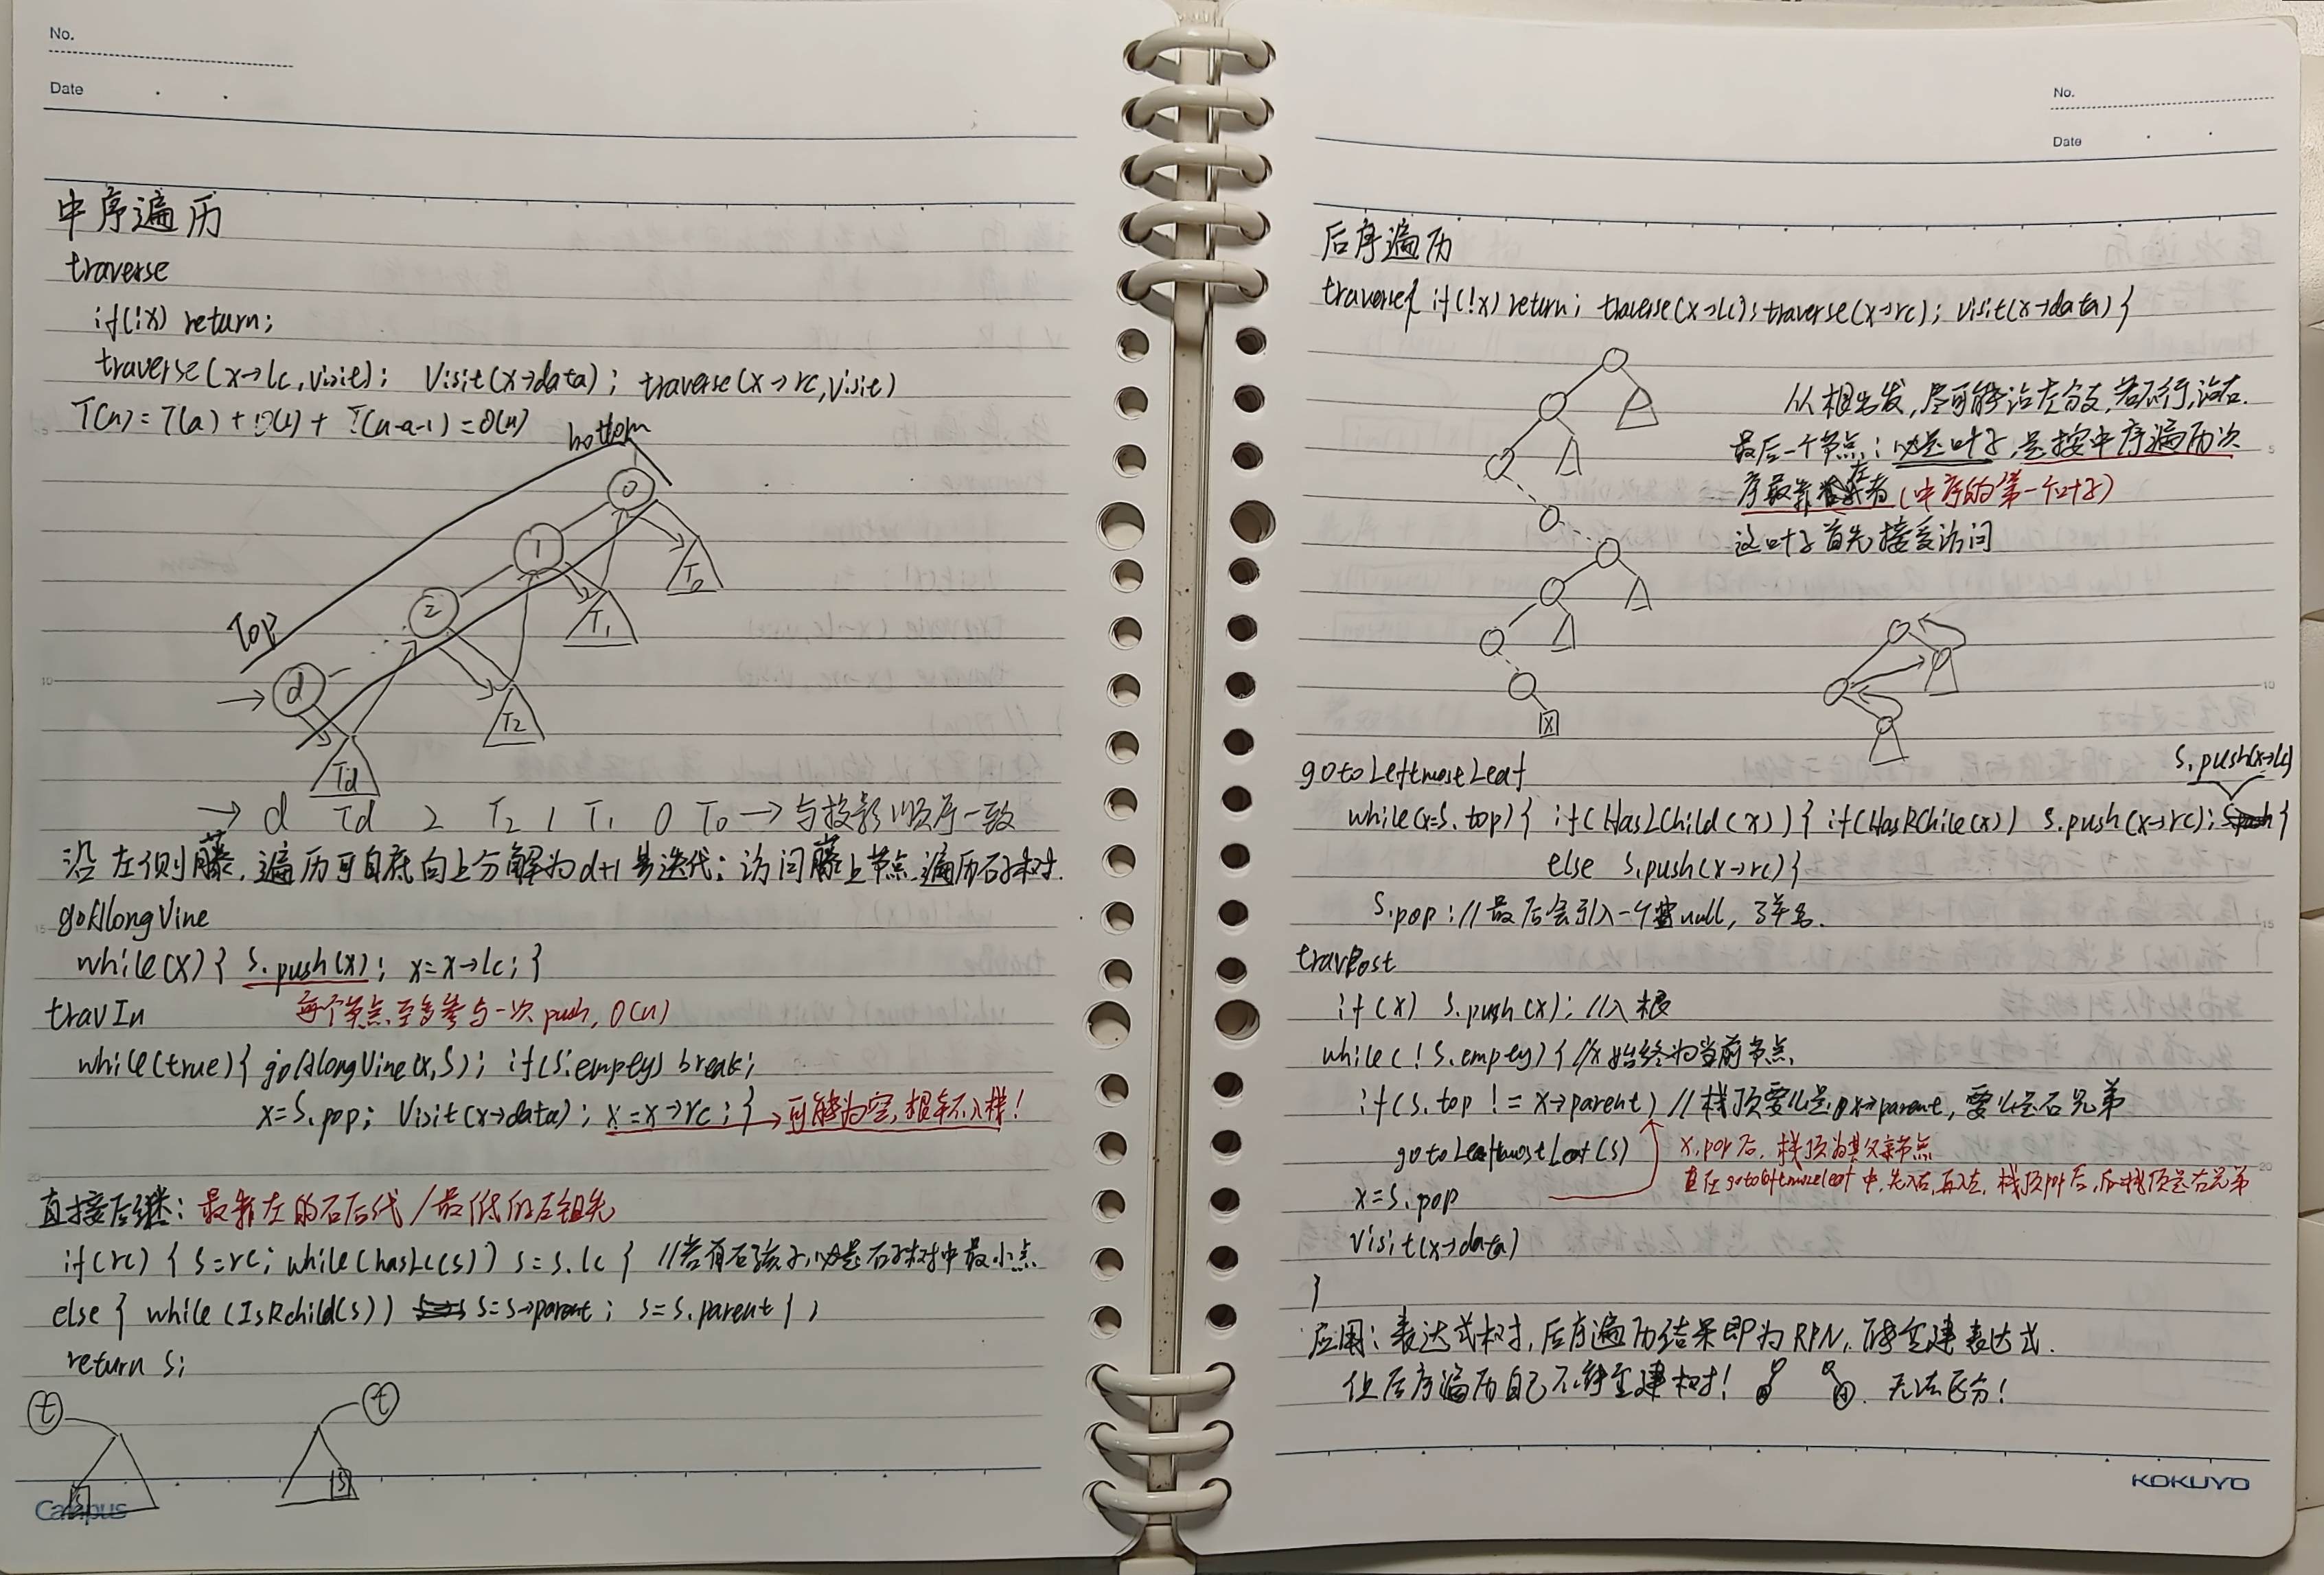 No.
Date
中序遍历
traverse
if(!x) return;
traverse(x→lc,visit); Visit(x→data); traverse(x→rc,visit)
T(n)=T(a)+O(1)+T(n-a-1)=O(n)
bottom
0
T0
1
T1
2
T2
Top
d
Td
→ d Td 2 T2 1 T1 0 T0 → 与投影顺序一致
沿左侧藤,遍历可自底向上分解为d+1步迭代:访问藤上节点,遍历右子树.
goAlongVine
while(x){ S.push(x); x=x→lc; }
travIn 每个节点至多参与一次push, O(n)
while(true){ goAlongVine(x,S); if(S.empty) break;
x=S.pop; Visit(x→data); x=x→rc; } → 可能为空,根本不入栈!
直接后继:最靠左的右后代/最低的左祖先
if(rc) { s=rc; while(hasLc(s)) s=s.lc } //若有右孩子,必是右子树中最小点
else { while(IsRchild(s)) s=s→parent; s=s.parent }
return s;
t
t
s
s
Campus
No.
Date
后序遍历
traverse{ if(!x) return; traverse(x→lc); traverse(x→rc); visit(x→data) }
从根出发,尽可能沿左分支,若不行,沿右.
最后一个节点:必是叶子,是按中序遍历次
序最靠左者(中序的第一个叶子)
这叶子首先接受访问
x
gotoLeftmostLeaf
S.push(x→lc)
while(x=S.top){ if(HasLChild(x)){ if(HasRChile(x)) S.push(x→rc); }
else S.push(x→rc) }
S.pop; //最后会引入一个null,弃去.
travPost
if(x) S.push(x); //入根
while(!S.empty){ //x始终为当前节点
if(S.top != x→parent) //栈顶要么是x→parent,要么是右兄弟
gotoLeftmostLeaf(S) x.pop后,栈顶为其父亲节点
在gotoleftmostleaf中,先入右,再入左,栈顶pop后,后栈顶是右兄弟
x=S.pop
visit(x→data)
}
应用:表达式树,后序遍历结果即为RPN,可重建表达式.
但后序遍历自己不能重建树! 无法区分!
KOKUYO